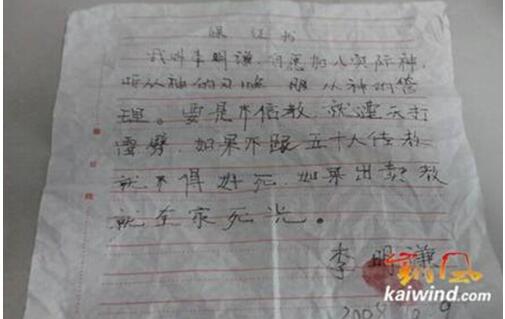 保证书
我叫李明谦，自愿加入实际神，
听从神的 服从神的管
理。要是不信教，就遭天打
雷劈，如果不跟五十人传教
就不得好死，如果出卖教
就全家死光。
李明谦
凯风
kaiwind.com